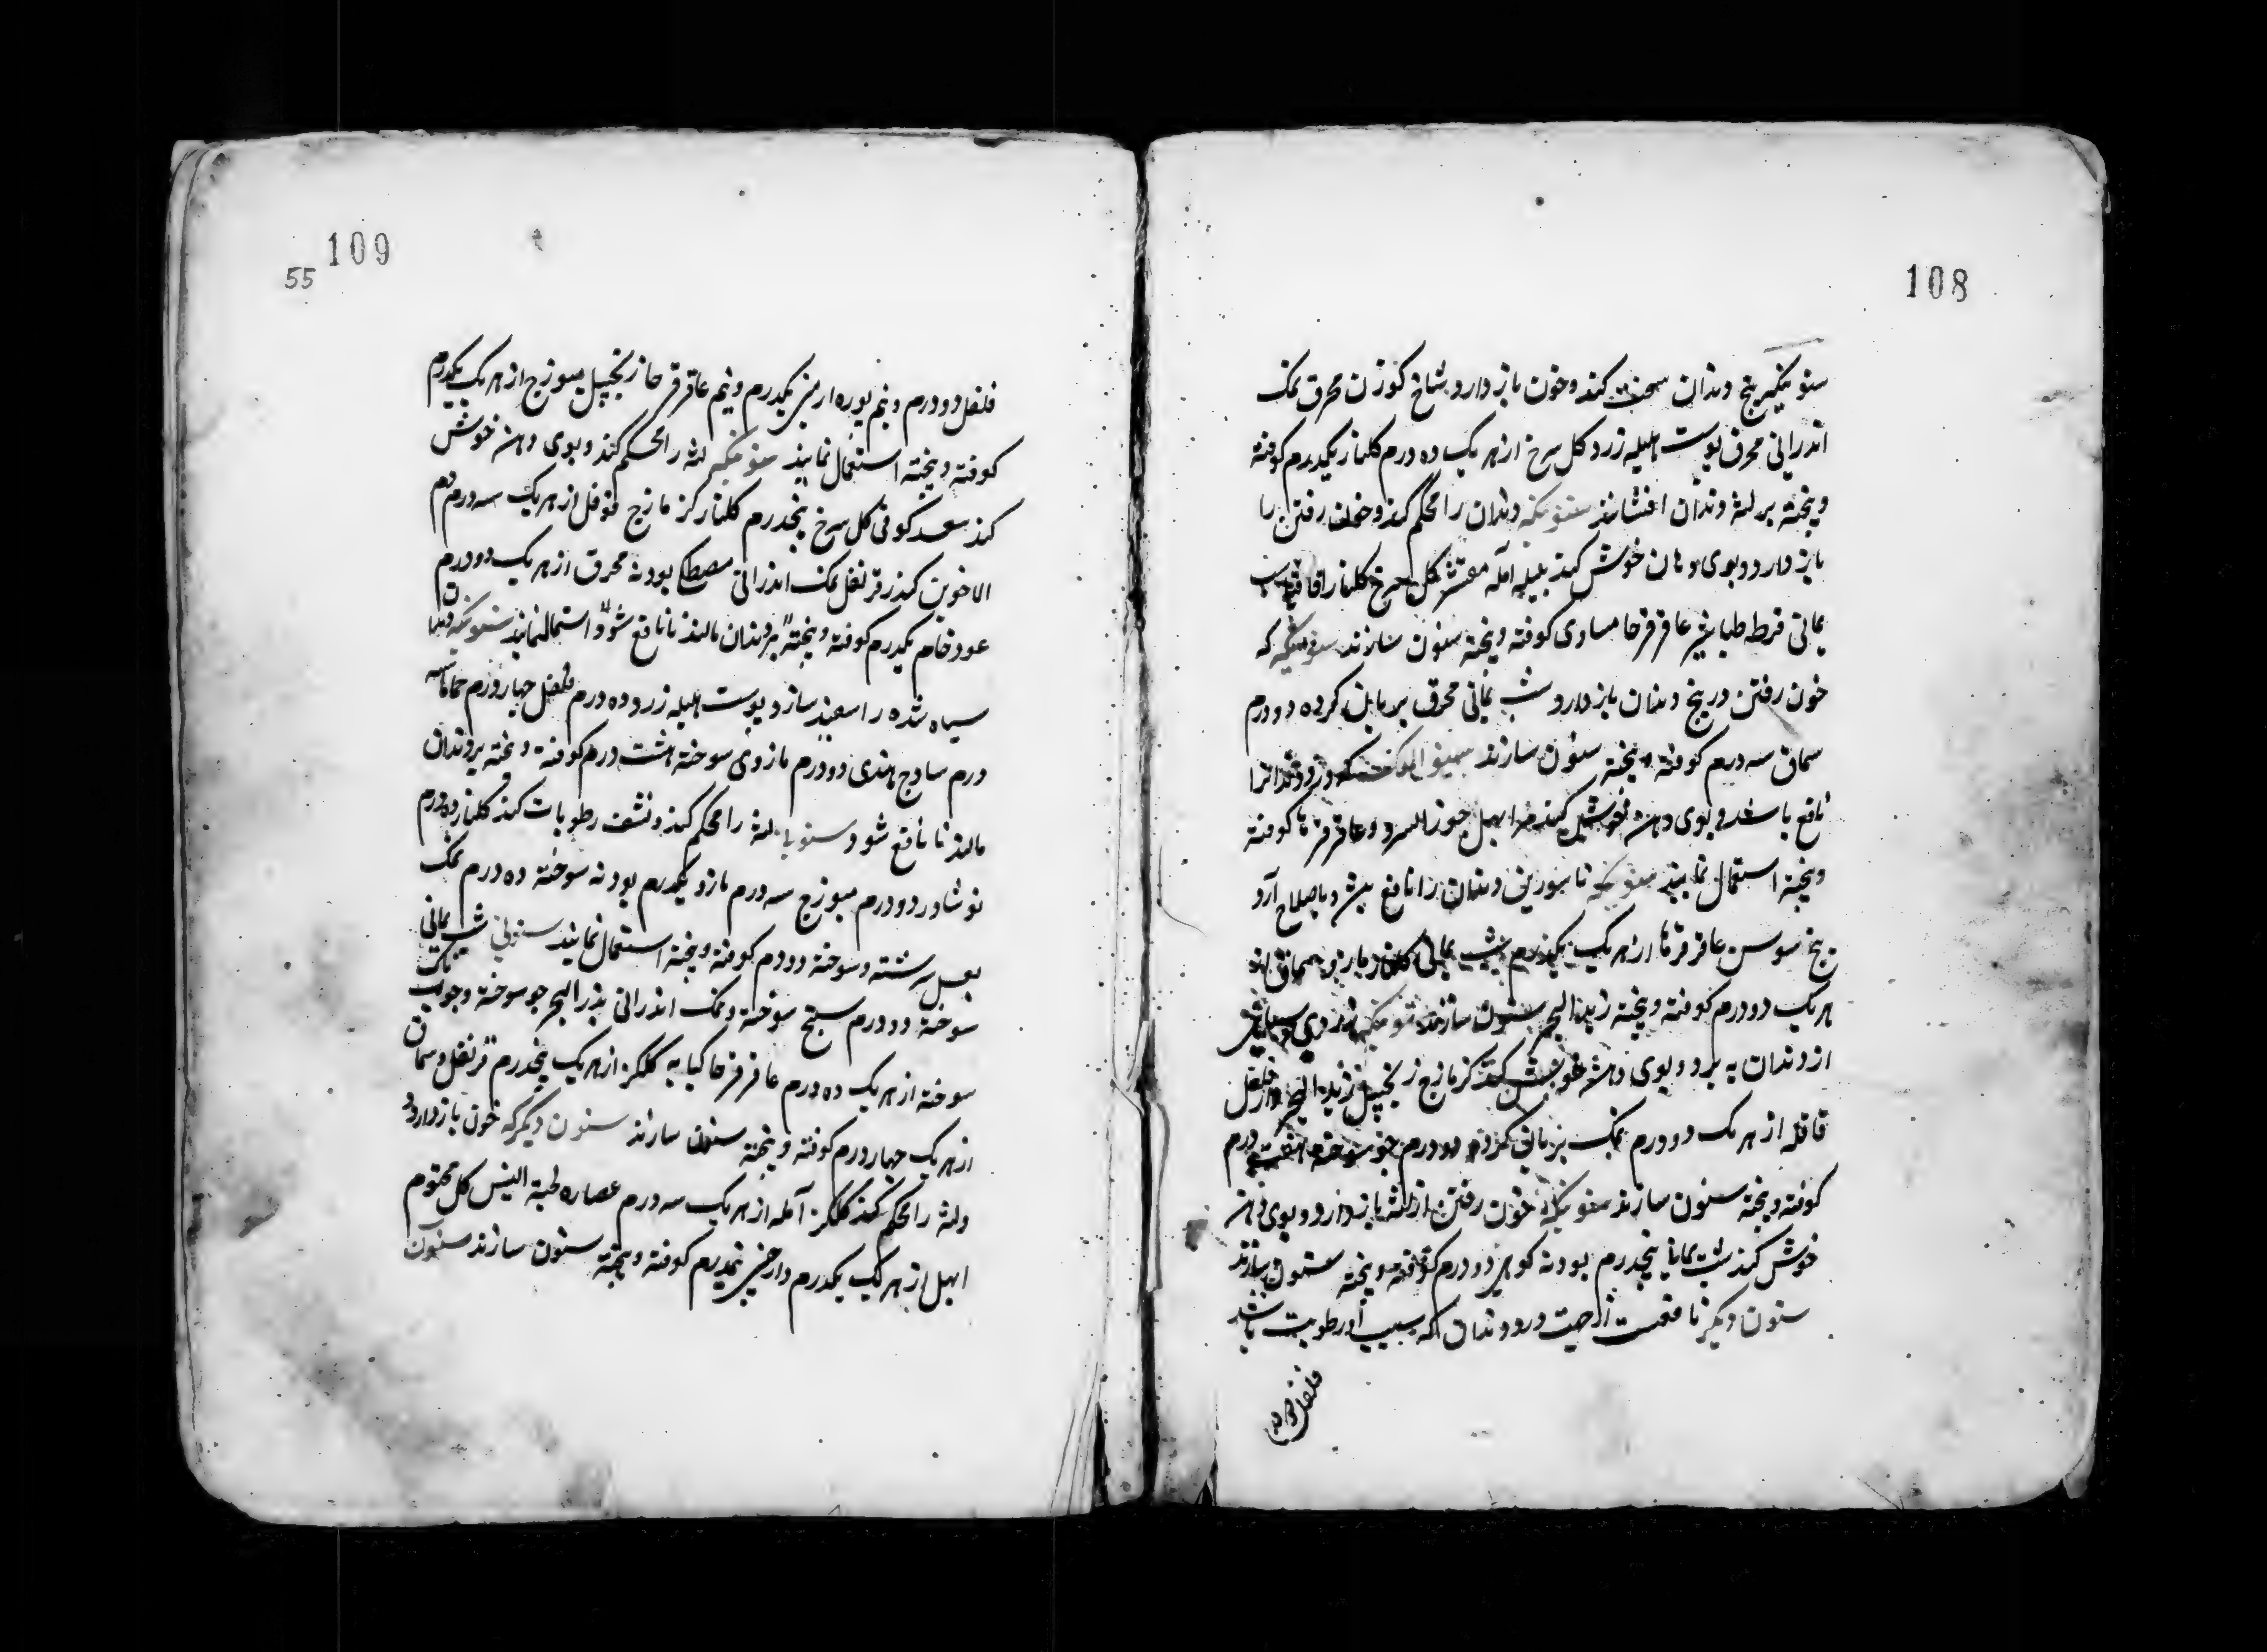 108
سنونیکه بیخ دندان سخت کند و خون باز دارد شاخ کوزن محرق نمک
اندرانی محرق پوست هلیله زرد کل سرخ از هر یک ده درم کلنار یکدرم کوفته
و پخته بر لثه دندان افشانند سنونیکه دندان را محکم کند و خون رفتن را
باز دارد و بوی دهان خوش کند بلیله آمله مقشر کل سرخ کلنار اقاقیا شب
یمانی قرط طباشیر عاقرقرحا مساوی کوفته و پخته سنون سازند سنونیکه که
خون رفتن در بیخ دندان باز دارد شب یمانی محرق بریان کرده دو درم
سماق سه درم کوفته و پخته سنون سازند
نافع باشد و بوی دهن خوش کند ابهل جوز السرو عاقرقرحا کوفته
و پخته استعمال نمایند سنونیکه ناسورین دندان را نافع بشد و باصلاح آرد
بیخ سوسن عاقرقرحا از هر یک یکدرم شب یمانی کلنار سماق از
هر یک دو درم کوفته و پخته زبد البحر سنون سازند سنونیکه زردی و سیاهی
از دندان به برد و بوی دهن خوش کند کزمازج زنجبیل زبد البحر دار فلفل
قاقله از هر یک دو درم نمک بریانی کرده دو درم جو سوخته هفت درم
کوفته و پخته سنون سازند سنونیکه خون رفتن از لثه باز دارد و بوی دهن
خوش کند شب یمانی پنجدرم پودنه کوهی دو درم کوفته و پخته سنون سازند
سنون دیکر نافعست از جهت درد دندان که بسبب او رطوبت باشد
فلفل دو درم
109
55
فلفل دو درم و نیم بوره ارمنی یکدرم و نیم عاقرقرحا زنجبیل میوزج از هر یک یکدرم
کوفته و پخته استعمال نمایند سنونیکه لثه را محکم کند و بوی دهن خوش
کند سعد کوفی کل سرخ پنجدرم کلنار کزمازج فوفل از هر یک سه درم دم
الاخوین کندر قرنفل نمک اندرانی مصطکی پودنه محرق از هر یک دو درم
عود خام یکدرم کوفته و پخته بر دندان مالند تا نافع شود و استعمال نمایند سنونیکه دندان
سیاه شده را سفید سازد پوست هلیله زرد ده درم فلفل چهار درم حماما سه
درم سادج هندی دو درم مازوی سوخته هشت درم کوفته و پخته بر دندان
مالند تا نافع شود سنونیکه لثه را محکم کند و نشف رطوبات کند کلنار ده درم
نوشادر دو درم میوزج سه درم مازو یکدرم پودنه سوخته ده درم نمک
بعسل سرشته و سوخته دو درم کوفته و پخته استعمال نمایند سنونی شب یمانی
سوخته دو درم سبج سوخته و نمک اندرانی زبد البحر جو سوخته و چوب تاک
سوخته از هر یک ده درم عاقرقرحا کبابه کلکز از هر یک پنجدرم قرنفل و سماق
از هر یک چهار درم کوفته و پخته سنون سازند سنون دیکر که خون باز دارد و
ولثه را محکم کند کلکز آمله از هر یک سه درم عصاره لحیة التیس کل مختوم
ابهل از هر یک یکدرم دارچینی نیمدرم کوفته و پخته سنون سازند سنون